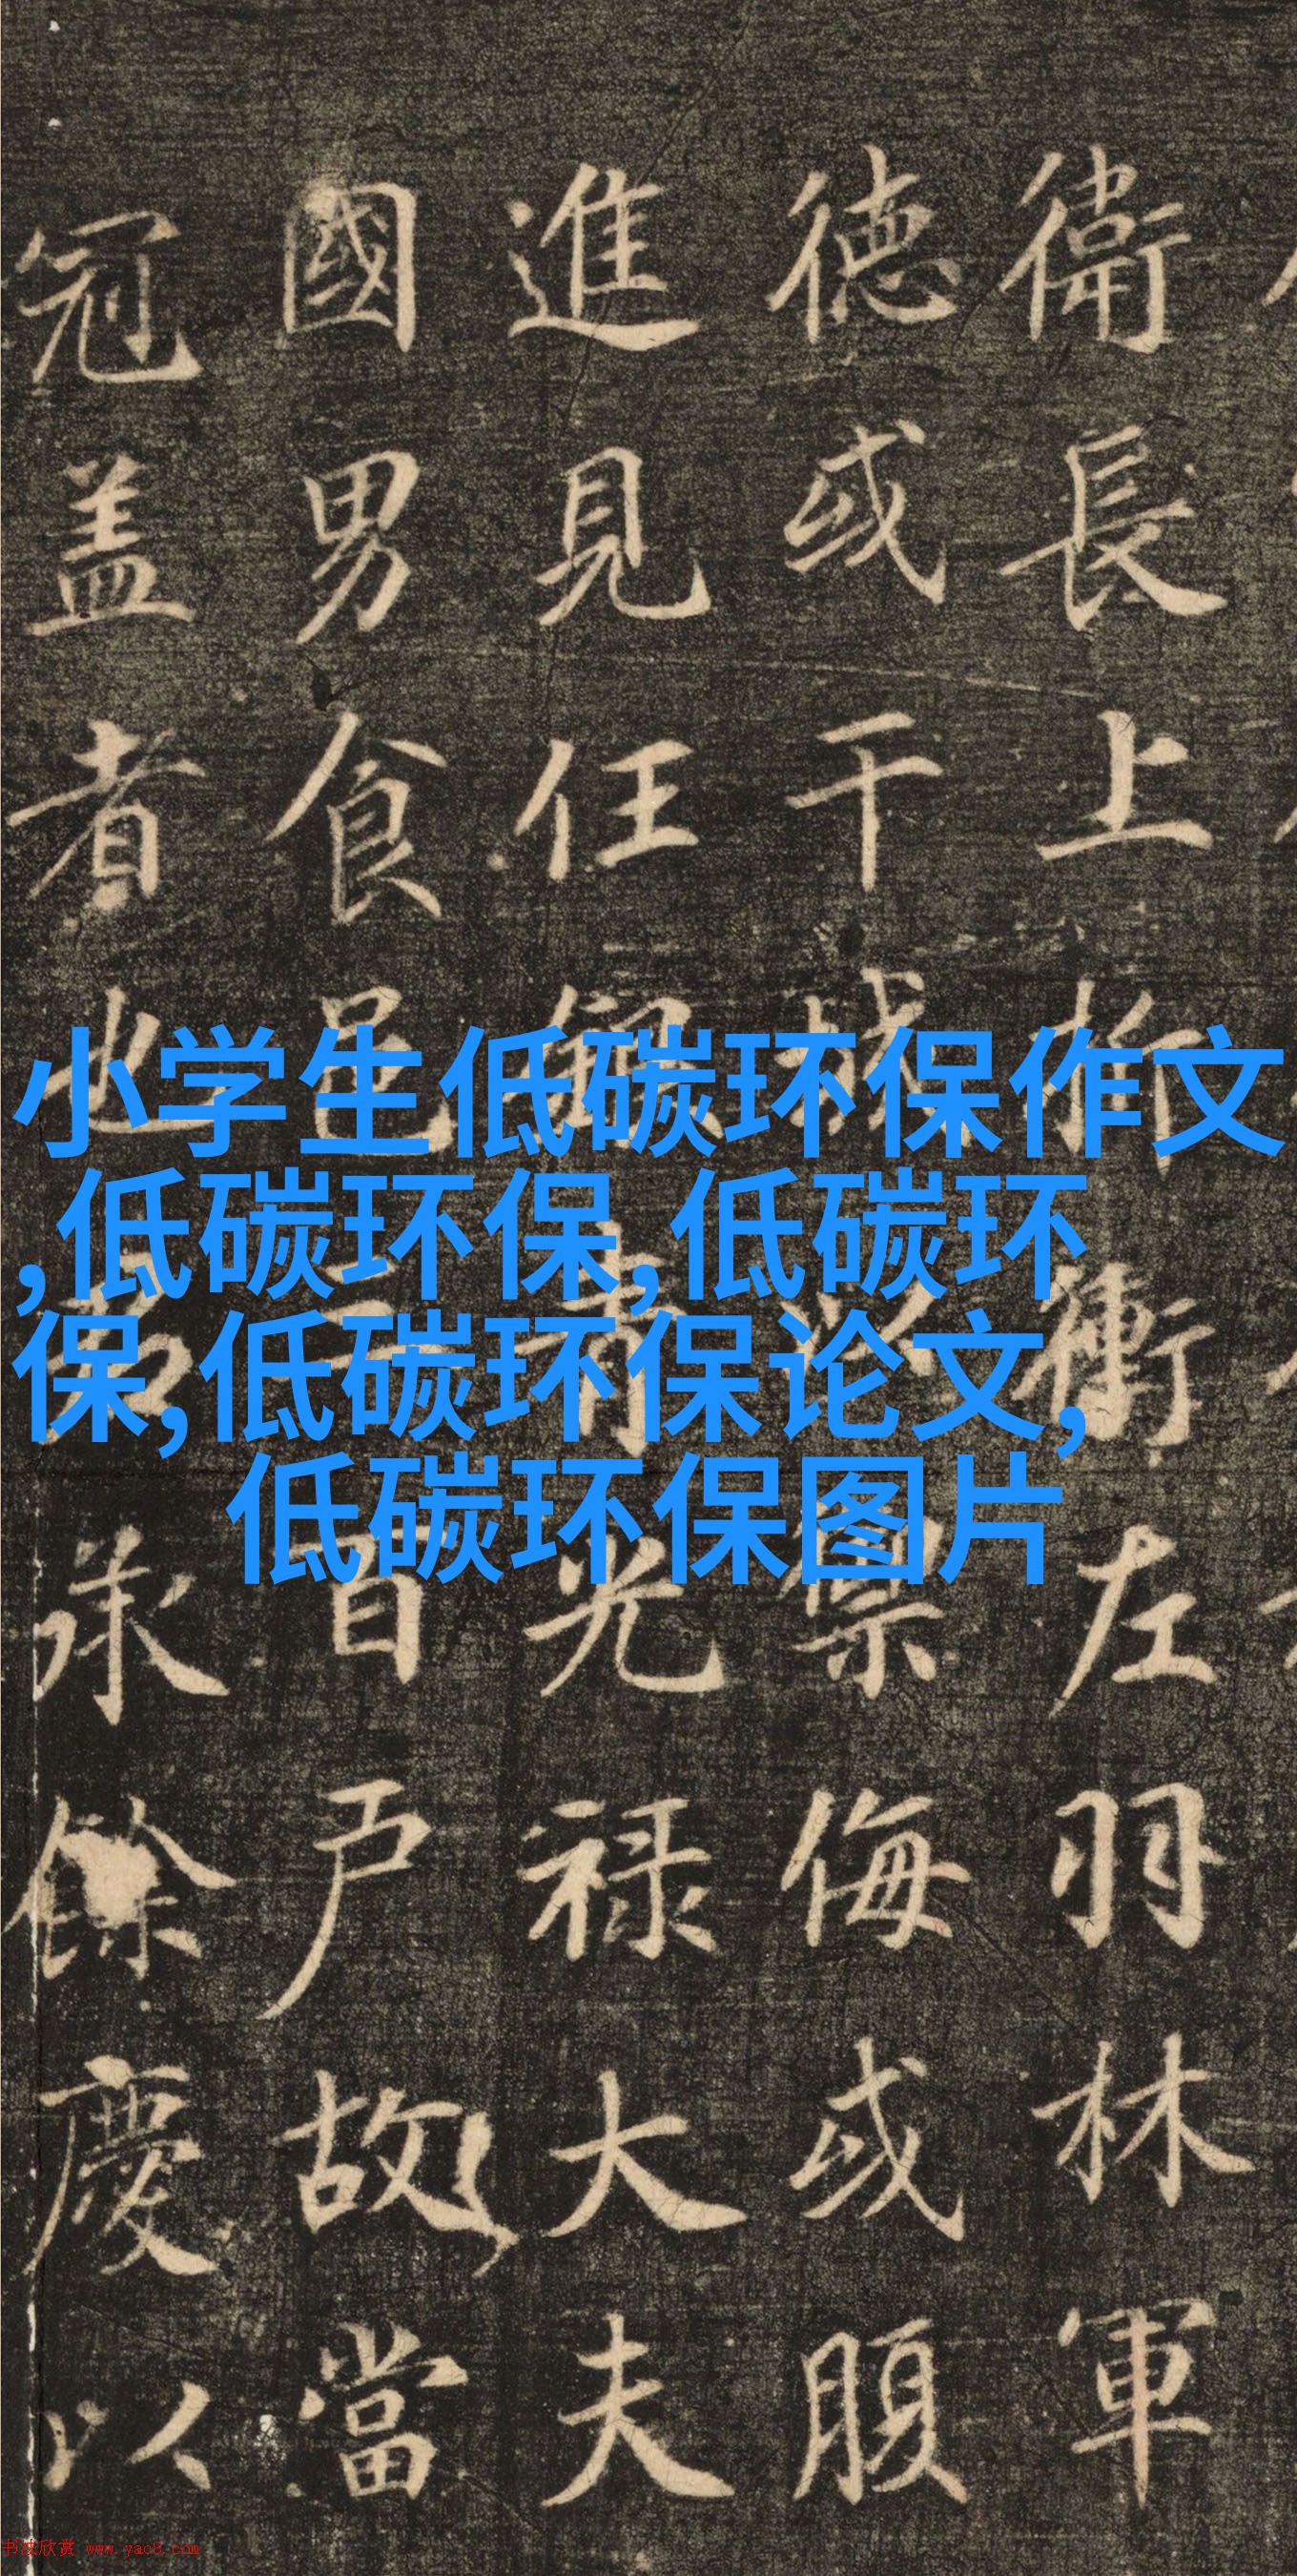 衛長上折衝左羽林軍
德或干城以禦侮或腹
進見任銀青光禄大夫
國男食邑百户故當
冠盖者也承餘慶以
小学生低碳环保作文
,低碳环保,低碳环
保,低碳环保论文,
低碳环保图片
书法欣赏 www.yac8.com